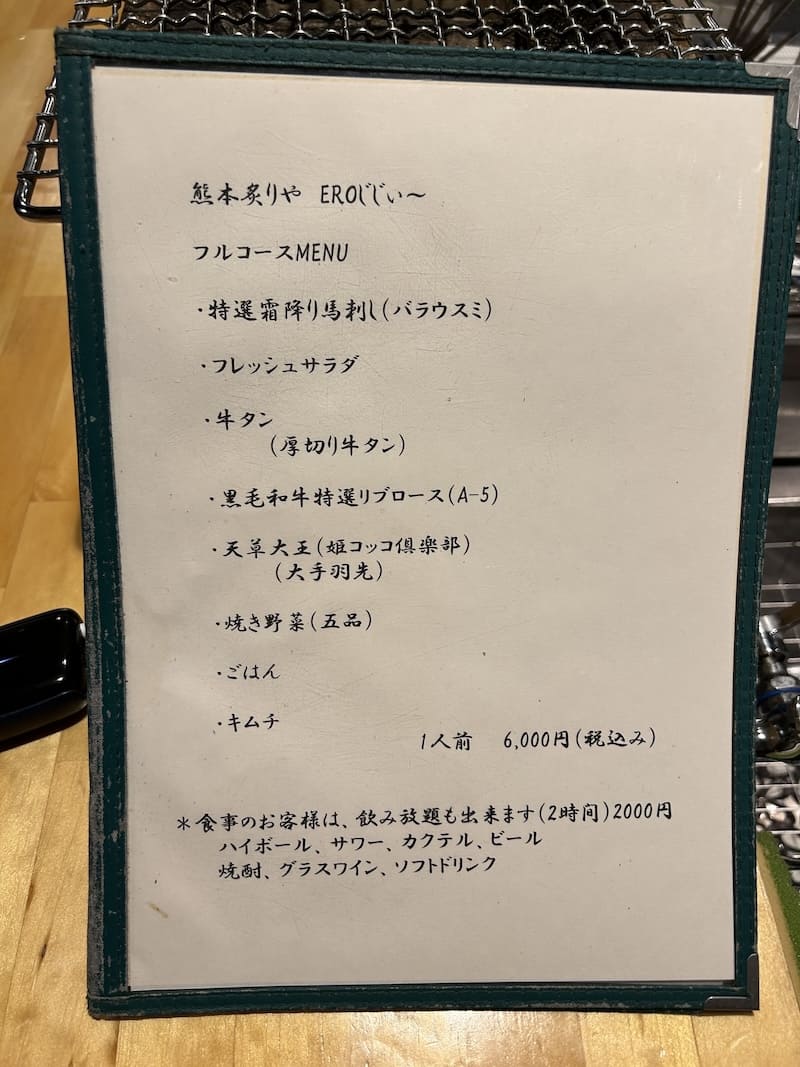 熊本炙りや EROじじぃ～
フルコースMENU
・特選霜降り馬刺し(バラウスミ)
・フレッシュサラダ
・牛タン
(厚切り牛タン)
・黒毛和牛特選リブロース(A-5)
・天草大王(姫コッコ倶楽部)
(大手羽先)
・焼き野菜(五品)
・ごはん
・キムチ
1人前 6,000円(税込み)
＊食事のお客様は、飲み放題も出来ます(2時間)2000円
ハイボール、サワー、カクテル、ビール
焼酎、グラスワイン、ソフトドリンク